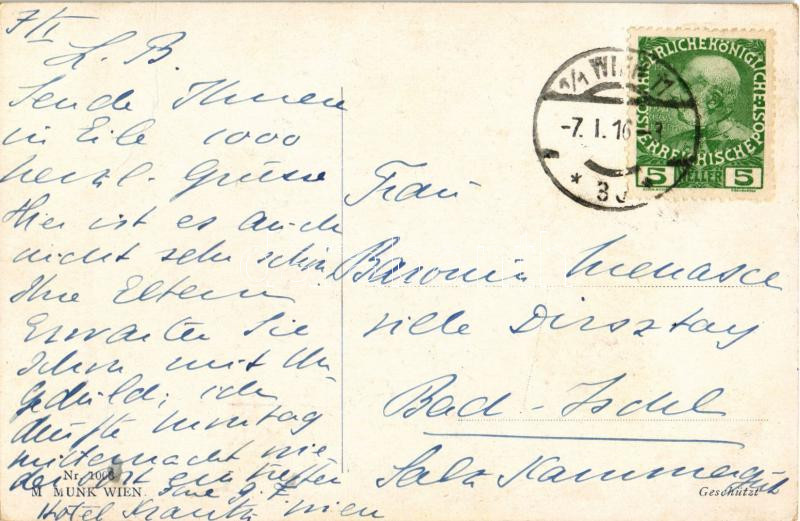 7/I
L. B.
Sende Ihnen
in Eile 1000
herzl. Grüsse
Hier ist es auch
nicht sehr schön
Ihre Eltern
Erwarten Sie
schon mit Un
geduld; ich
dürfte Montag
mitternacht wie
der dort eintreffen
Hotel Krantz Wien
Nr. 1008
M MUNK WIEN.
KAISERLICHE KÖNIGLICHE
ÖSTERREICHISCHE POST
5 HELLER 5
1/1 WIEN
-7. I. 16
* 3
Frau
Baronin Menasce
Ville Dirsztay
Bad-Ischl
Salz Kammergut
Geschützt